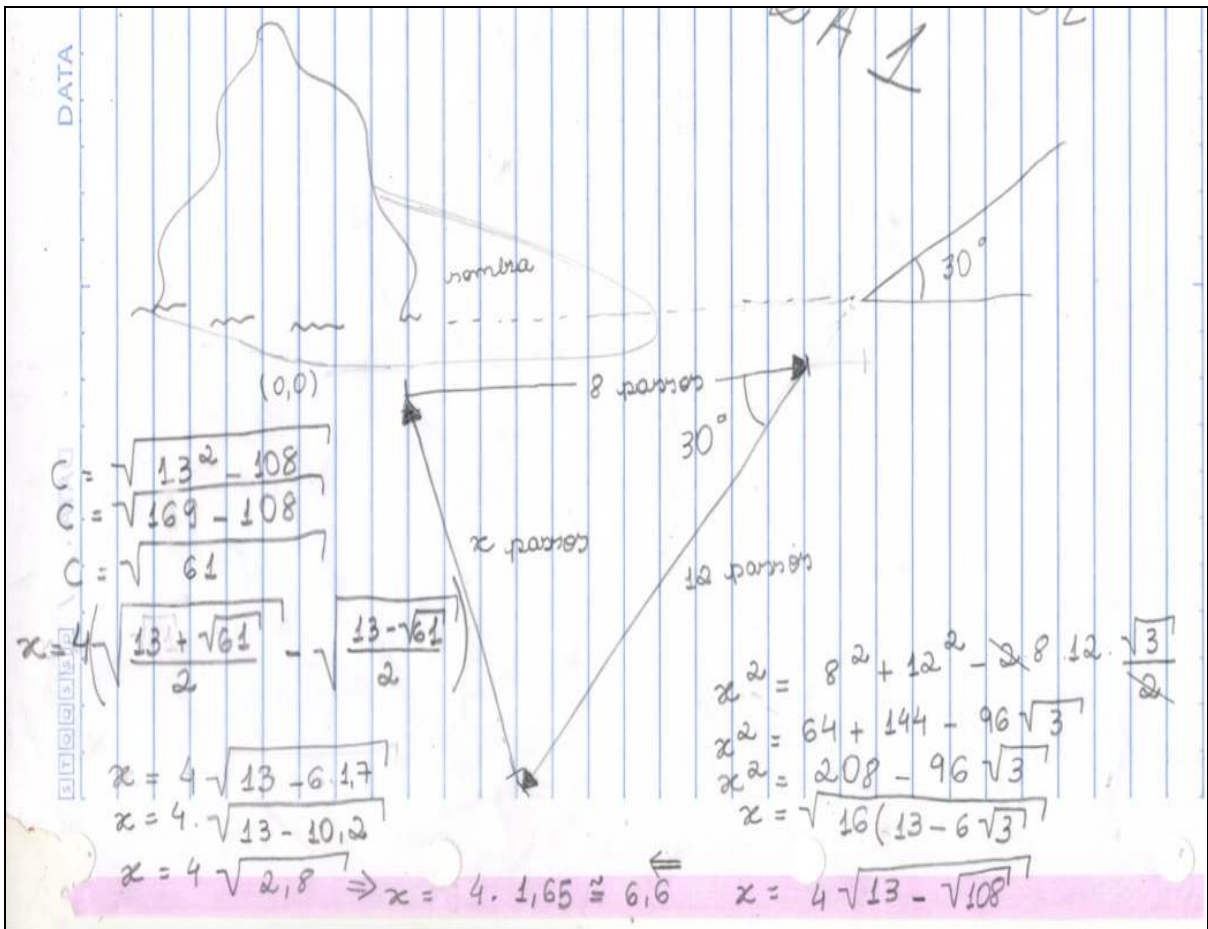 DATA
1
sombra
30°
(0,0)
8 passos
30°
x passos
12 passos
C = √(13² - 108)
C = √(169 - 108)
C = √61
x = 4(√((13 + √61)/2) - √((13 - √61)/2))
x = 4√(13 - 6.1,7)
x = 4.√(13 - 10,2)
x = 4√2,8 ⇒ x = 4. 1,65 ≅ 6,6
x² = 8² + 12² - 2 8.12.√3/2
x² = 64 + 144 - 96√3
x² = 208 - 96√3
x = √(16(13 - 6√3
⇐
x = 4√(13 - √108)
S T Q Q S S D